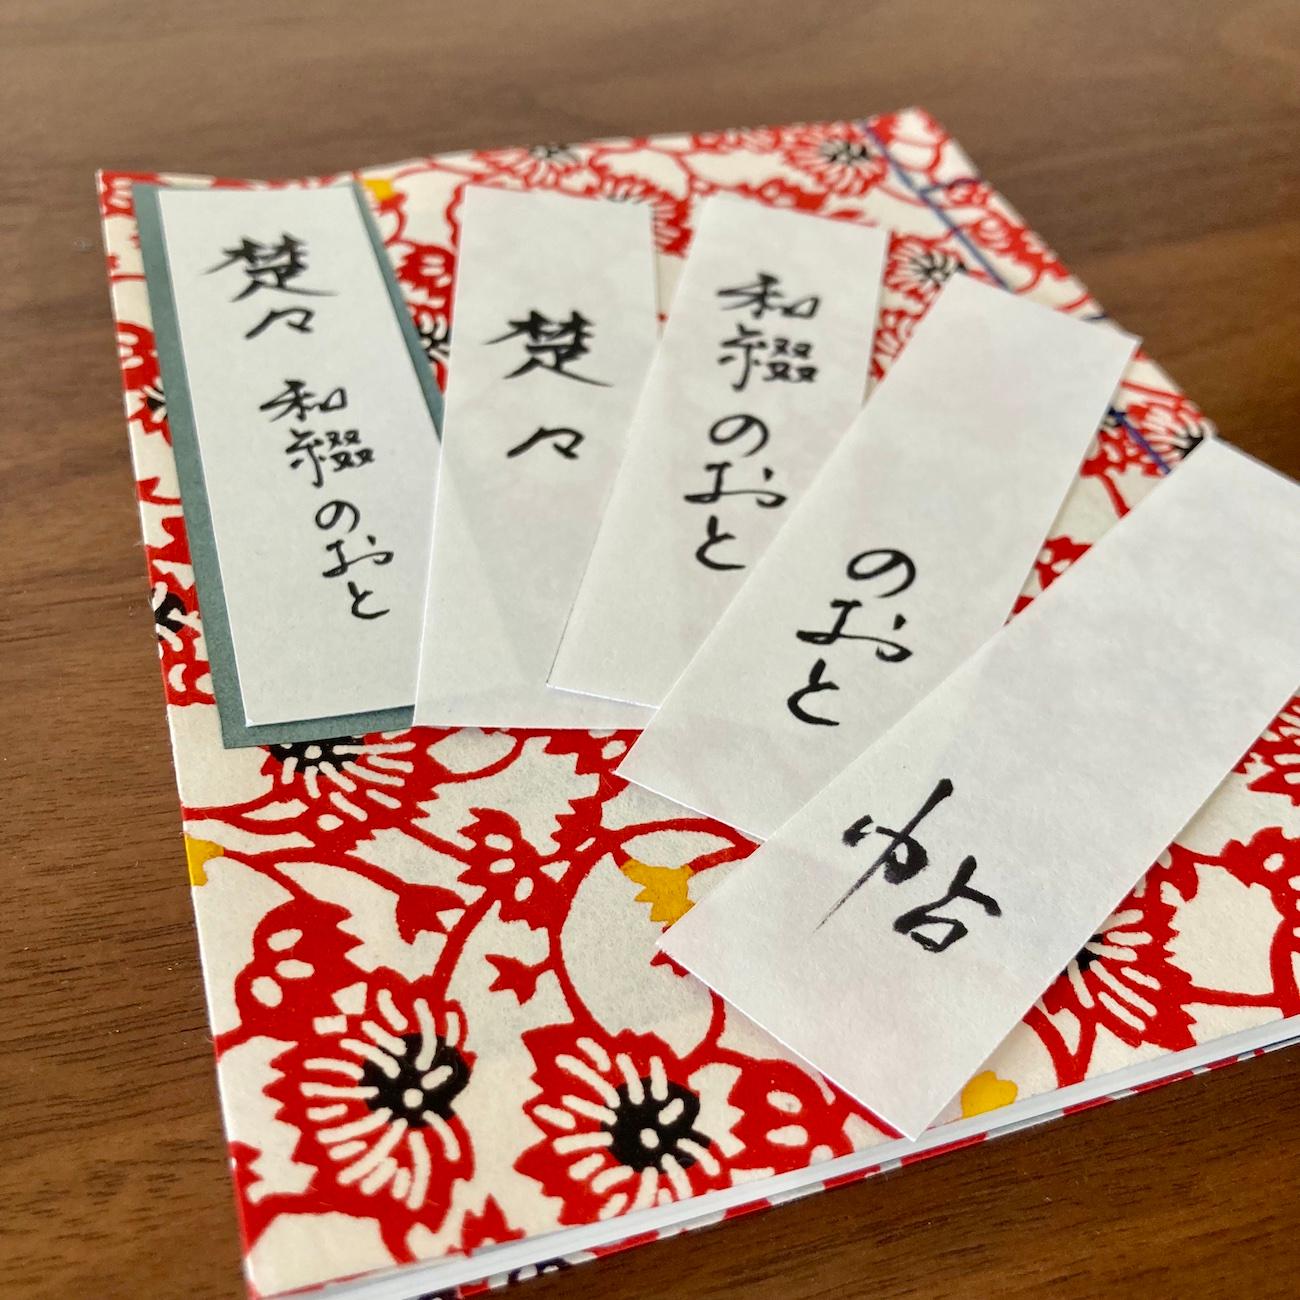 楚々 和綴のおと
楚々
和綴のおと
のおと
帖